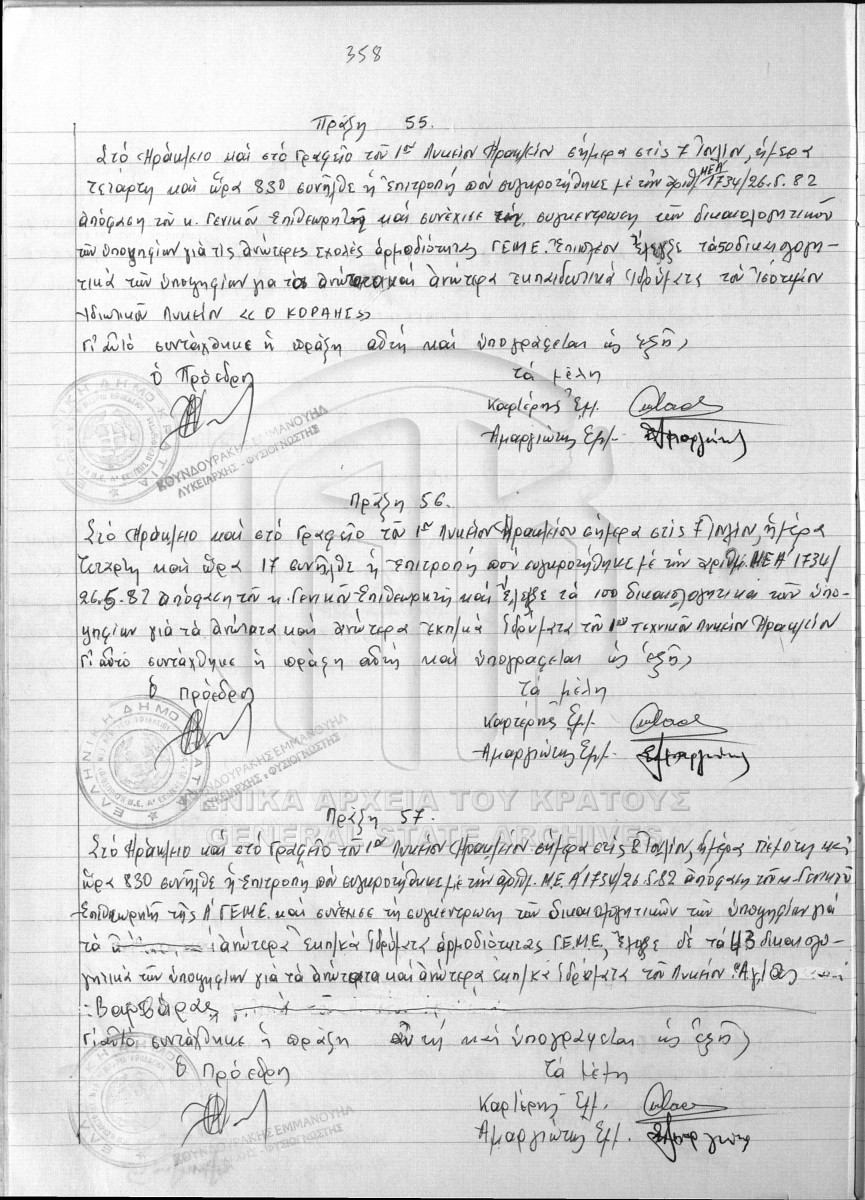 358
Πράξη 55.
Στό Ηράκλειο καί στό Γραφεῖο τοῦ 1ου Λυκείου Ηρακλείου σήμερα στίς 7 Ἰουλίου, ἡμέρα
Τετάρτη καί ὥρα 830 συνῆλθε ἡ Ἐπιτροπή πού συγκροτήθηκε μέ τήν ἀριθ. ΜΕΑ 1734/26.5.82
ἀπόφαση τοῦ κ. Γενικοῦ Ἐπιθεωρητῆ καί συνέχισε τήν συγκεντρωση τῶν δικαιολογητικῶν
τῶν ὑποψηφίων γιά τίς ἀνώτερες σχολές ἁρμοδιότητας ΓΕΜΕ. Ἐπιπλέον ἔλεγξε τά 50 δικαιολογη-
τικά τῶν ὑποψηφίων για τα ἀνώτατα καί ἀνώτερα ἐκπαιδευτικά ἱδρύματα τοῦ ἰσότιμου
Ιδιωτικοῦ Λυκείου «Ο ΚΟΡΑΗΣ»
Γι' αυτό συντάχθηκε ἡ πράξη αὐτή καί ὑπογράφεται ὡς ἑξῆς,
ὁ Πρόεδρος
τά μέλη
Καρτέρης Ἐμ.
Αμαργιώτης Εμ.
ΕΛΛΗΝΙΚΗ ΔΗΜΟΚΡΑΤΙΑ
ΚΟΥΝΔΟΥΡΑΚΗΣ ΕΜΜΑΝΟΥΗΛ
ΛΥΚΕΙΑΡΧΗΣ - ΦΥΣΙΟΓΝΩΣΤΗΣ
Πράξη 56.
Στό Ηράκλειο καί στό Γραφεῖο τοῦ 1ου Λυκείου Ηρακλείου σήμερα στίς 7 Ἰουλίου, ἡμέρα
Τετάρτη καί ὥρα 17 συνῆλθε ἡ Ἐπιτροπή πού συγκροτήθηκε μέ τήν ἀριθμ. ΜΕΑ 1734/
26.5.82 ἀπόφαση τοῦ κ. Γενικοῦ Ἐπιθεωρητῆ καί ἔλεγξε τά 100 δικαιολογητικά τῶν ὑπο-
ψηφίων γιά τά ἀνώτατα καί ἀνώτερα ἐκπ/κά ἱδρύματα τοῦ 1ου τεχνικοῦ Λυκείου Ηρακλείου
Γι' αυτό συντάχθηκε ἡ πράξη αὐτή καί ὑπογράφεται ὡς ἑξῆς,
ὁ Πρόεδρος
τά μέλη
Καρτέρης Ἐμ.
Αμαργιώτης Εμ.
ΕΛΛΗΝΙΚΗ ΔΗΜΟΚΡΑΤΙΑ
ΚΟΥΝΔΟΥΡΑΚΗΣ ΕΜΜΑΝΟΥΗΛ
ΛΥΚΕΙΑΡΧΗΣ - ΦΥΣΙΟΓΝΩΣΤΗΣ
ΓΕΝΙΚΑ ΑΡΧΕΙΑ ΤΟΥ ΚΡΑΤΟΥΣ
GENERAL STATE ARCHIVES
Πράξη 57.
Στό Ηράκλειο καί στό Γραφεῖο τοῦ 1ου Λυκείου Ηρακλείου σήμερα στίς 8 Ἰουλίου, ἡμέρα Πέμπτη καί
ὥρα 830 συνῆλθε ἡ Ἐπιτροπή πού συγκροτήθηκε μέ τήν ἀριθ. Μ.Ε.Α 1734/26.5.82 ἀπόφαση τοῦ κ. Γενικοῦ
Ἐπιθεωρητῆ τῆς Α' ΓΕΜΕ. καί συνέχισε τή συγκεντρωση τῶν δικαιολογητικῶν τῶν ὑποψηφίων γιά
τά ἀνώτερα ἐκπ/κά ἱδρύματα ἁρμοδιότητας ΓΕΜΕ, ἔλεγξε δέ τά 43 δικαιολο-
γητικά τῶν ὑποψηφίων γιά τά ἀνώτατα καί ἀνώτερα ἐκπ/κά ἱδρύματα τοῦ Λυκείου Ἁγίας
Βαρβάρας
Γι' αυτό συντάχθηκε ἡ πράξη αὐτή καί ὑπογράφεται ὡς ἑξῆς,
ὁ Πρόεδρος
τά μέλη
Καρτέρης Ἐμ.
Αμαργιώτης Εμ.
ΚΟΥΝΔΟΥΡΑΚΗΣ ΕΜΜΑΝΟΥΗΛ
ΛΥΚΕΙΑΡΧΗΣ - ΦΥΣΙΟΓΝΩΣΤΗΣ